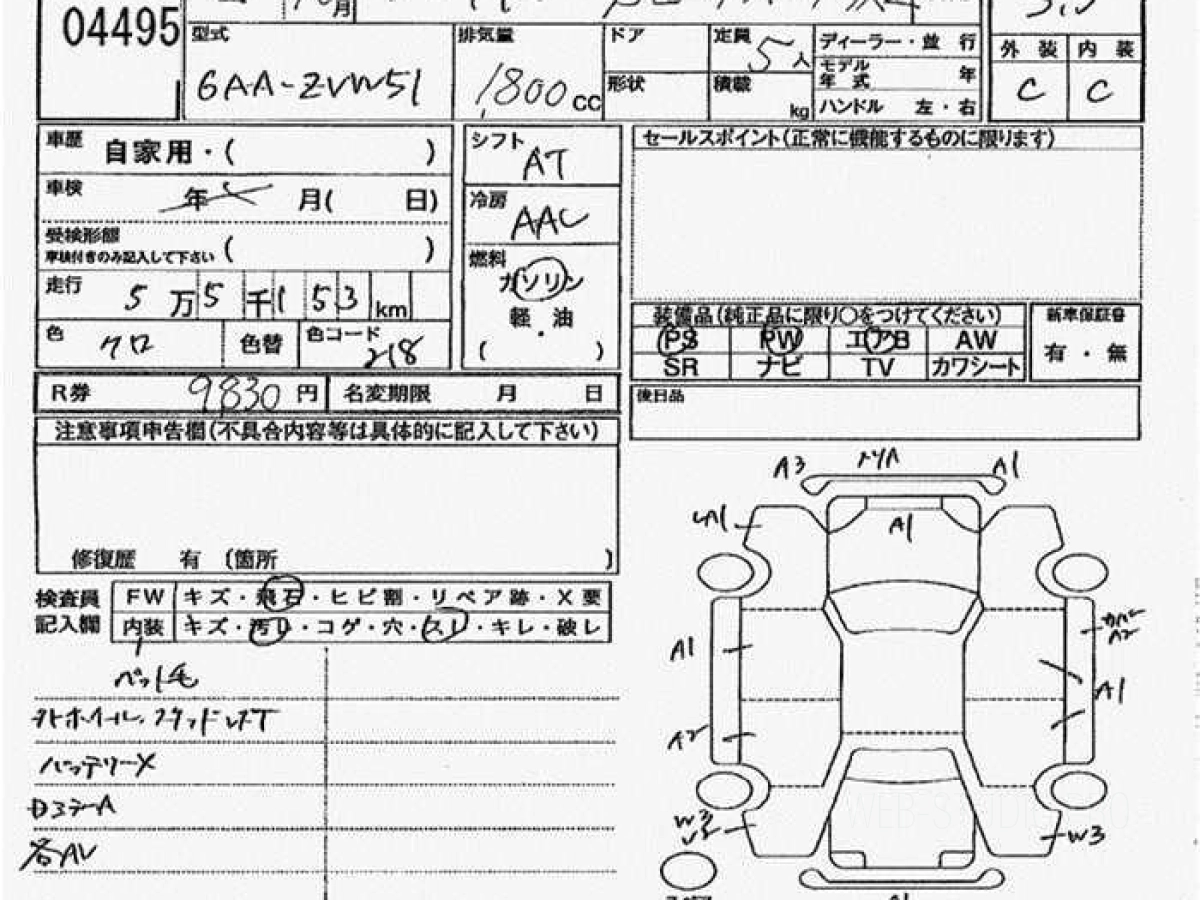 04495
型式
6AA-ZVW51
排気量
1800 cc
ドア
形状
定員 5人
積載 kg
ディーラー・並行
モデル年式 年
ハンドル 左・右
外装 内装
C C
車歴 自家用・( )
車検 年 月( 日)
受検形態 ( )
車検付きのみ記入して下さい
走行 5万5千153km
色 クロ 色替 色コード 218
R券 9830円 名変期限 月 日
シフト AT
冷房 AAC
燃料 ガソリン
軽・油
( )
セールスポイント(正常に機能するものに限ります)
装備品(純正品に限り〇をつけてください)
PS PW エアB AW
SR ナビ TV カワシート
新車保証書
有・無
後日品
注意事項申告欄(不具合内容等は具体的に記入して下さい)
修復歴 有 〔箇所 )
検査員記入欄
FW キズ・飛石・ヒビ割・リペア跡・X要
内装 キズ・汚レ・コゲ・穴・スレ・キレ・破レ
ペット毛
バッテリーX
各AU
A3 A1
A1
A1 カバーA2
A1
A2
W3
W3
A1